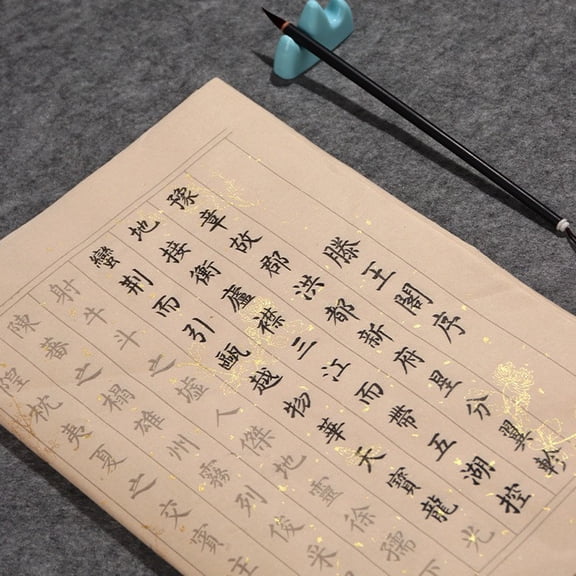 滕王閣序
豫章故郡洪都新府星分翼軫
地接衡廬襟三江而帶五湖控
蠻荊而引甌越物華天寶龍光
射牛斗之墟人傑地靈徐孺下
陳蕃之榻雄州霧列俊采
隍枕夷夏之交賓主